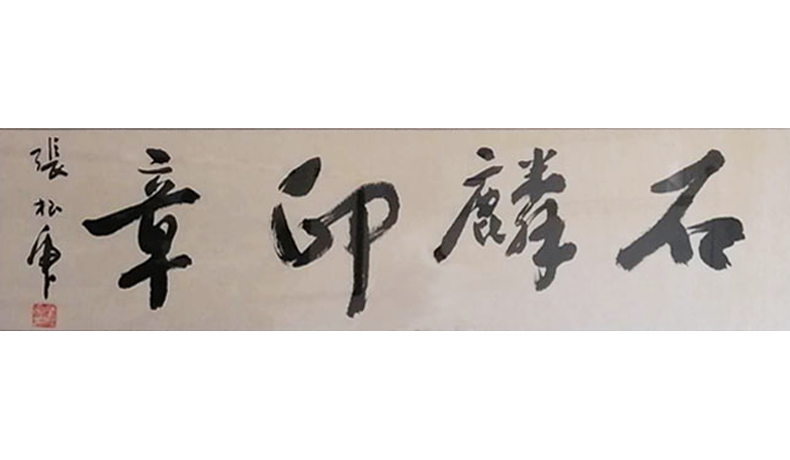 石麟印章
張松虎